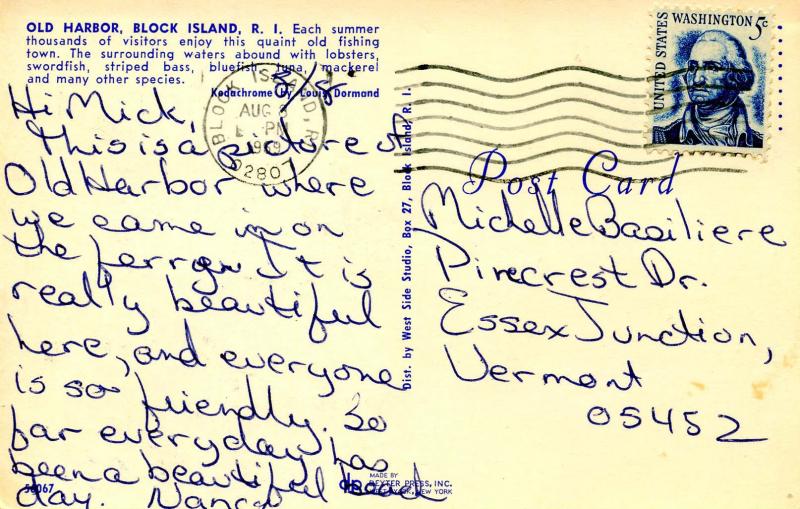 OLD HARBOR, BLOCK ISLAND, R. I. Each summer
thousands of visitors enjoy this quaint old fishing
town. The surrounding waters abound with lobsters,
swordfish, striped bass, bluefish, tuna, mackerel
and many other species.
Kodachrome by Louis Dormand
Hi Mick,
This is a picture of
Old Harbor where
we came in on
the ferry. It is
really beautiful
here, and everyone
is so friendly. So
far everyday has
been a beautiful
day. Nancy
56067
BLOCK ISLAND, R.I.
AUG
PM
1969
02807
Dist. by West Side Studio, Box 27, Block Island, R. I.
MADE BY
DEXTER PRESS, INC.
WEST NYACK, NEW YORK
UNITED STATES
WASHINGTON 5c
Post Card
Michelle Basiliere
Pinecrest Dr.
Essex Junction,
Vermont
05452